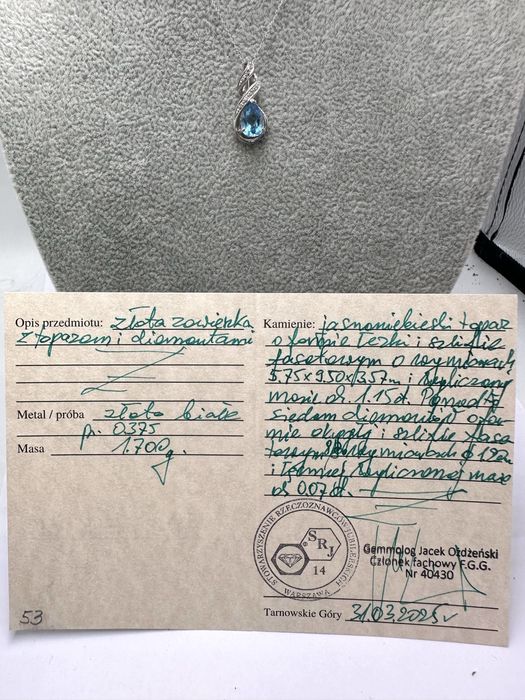 Opis przedmiotu: złota zawieszka
z topazem i diamentami
Metal / próba złoto białe
pr. 0.375
Masa 1.700g.
53
Kamienie: jasnoniebieski topaz
o formie łezki i szlifie
fasetowym o wymiarach
5.75 x 9.50 x 3.57m i wyliczonej
masie ok. 1.15ct. Ponadto
siedem diamentów o for-
mie okrągłej i szlifie fase-
towym o wymiarach
i łącznej wyliczonej masie
ok 0.07ct.
STOWARZYSZENIE RZECZOZNAWCÓW JUBILERSKICH
SRJ
14
WARSZAWA
Gemmolog Jacek Ożdżeński
Członek fachowy F.G.G.
Nr 40430
Tarnowskie Góry 31.03.2025r